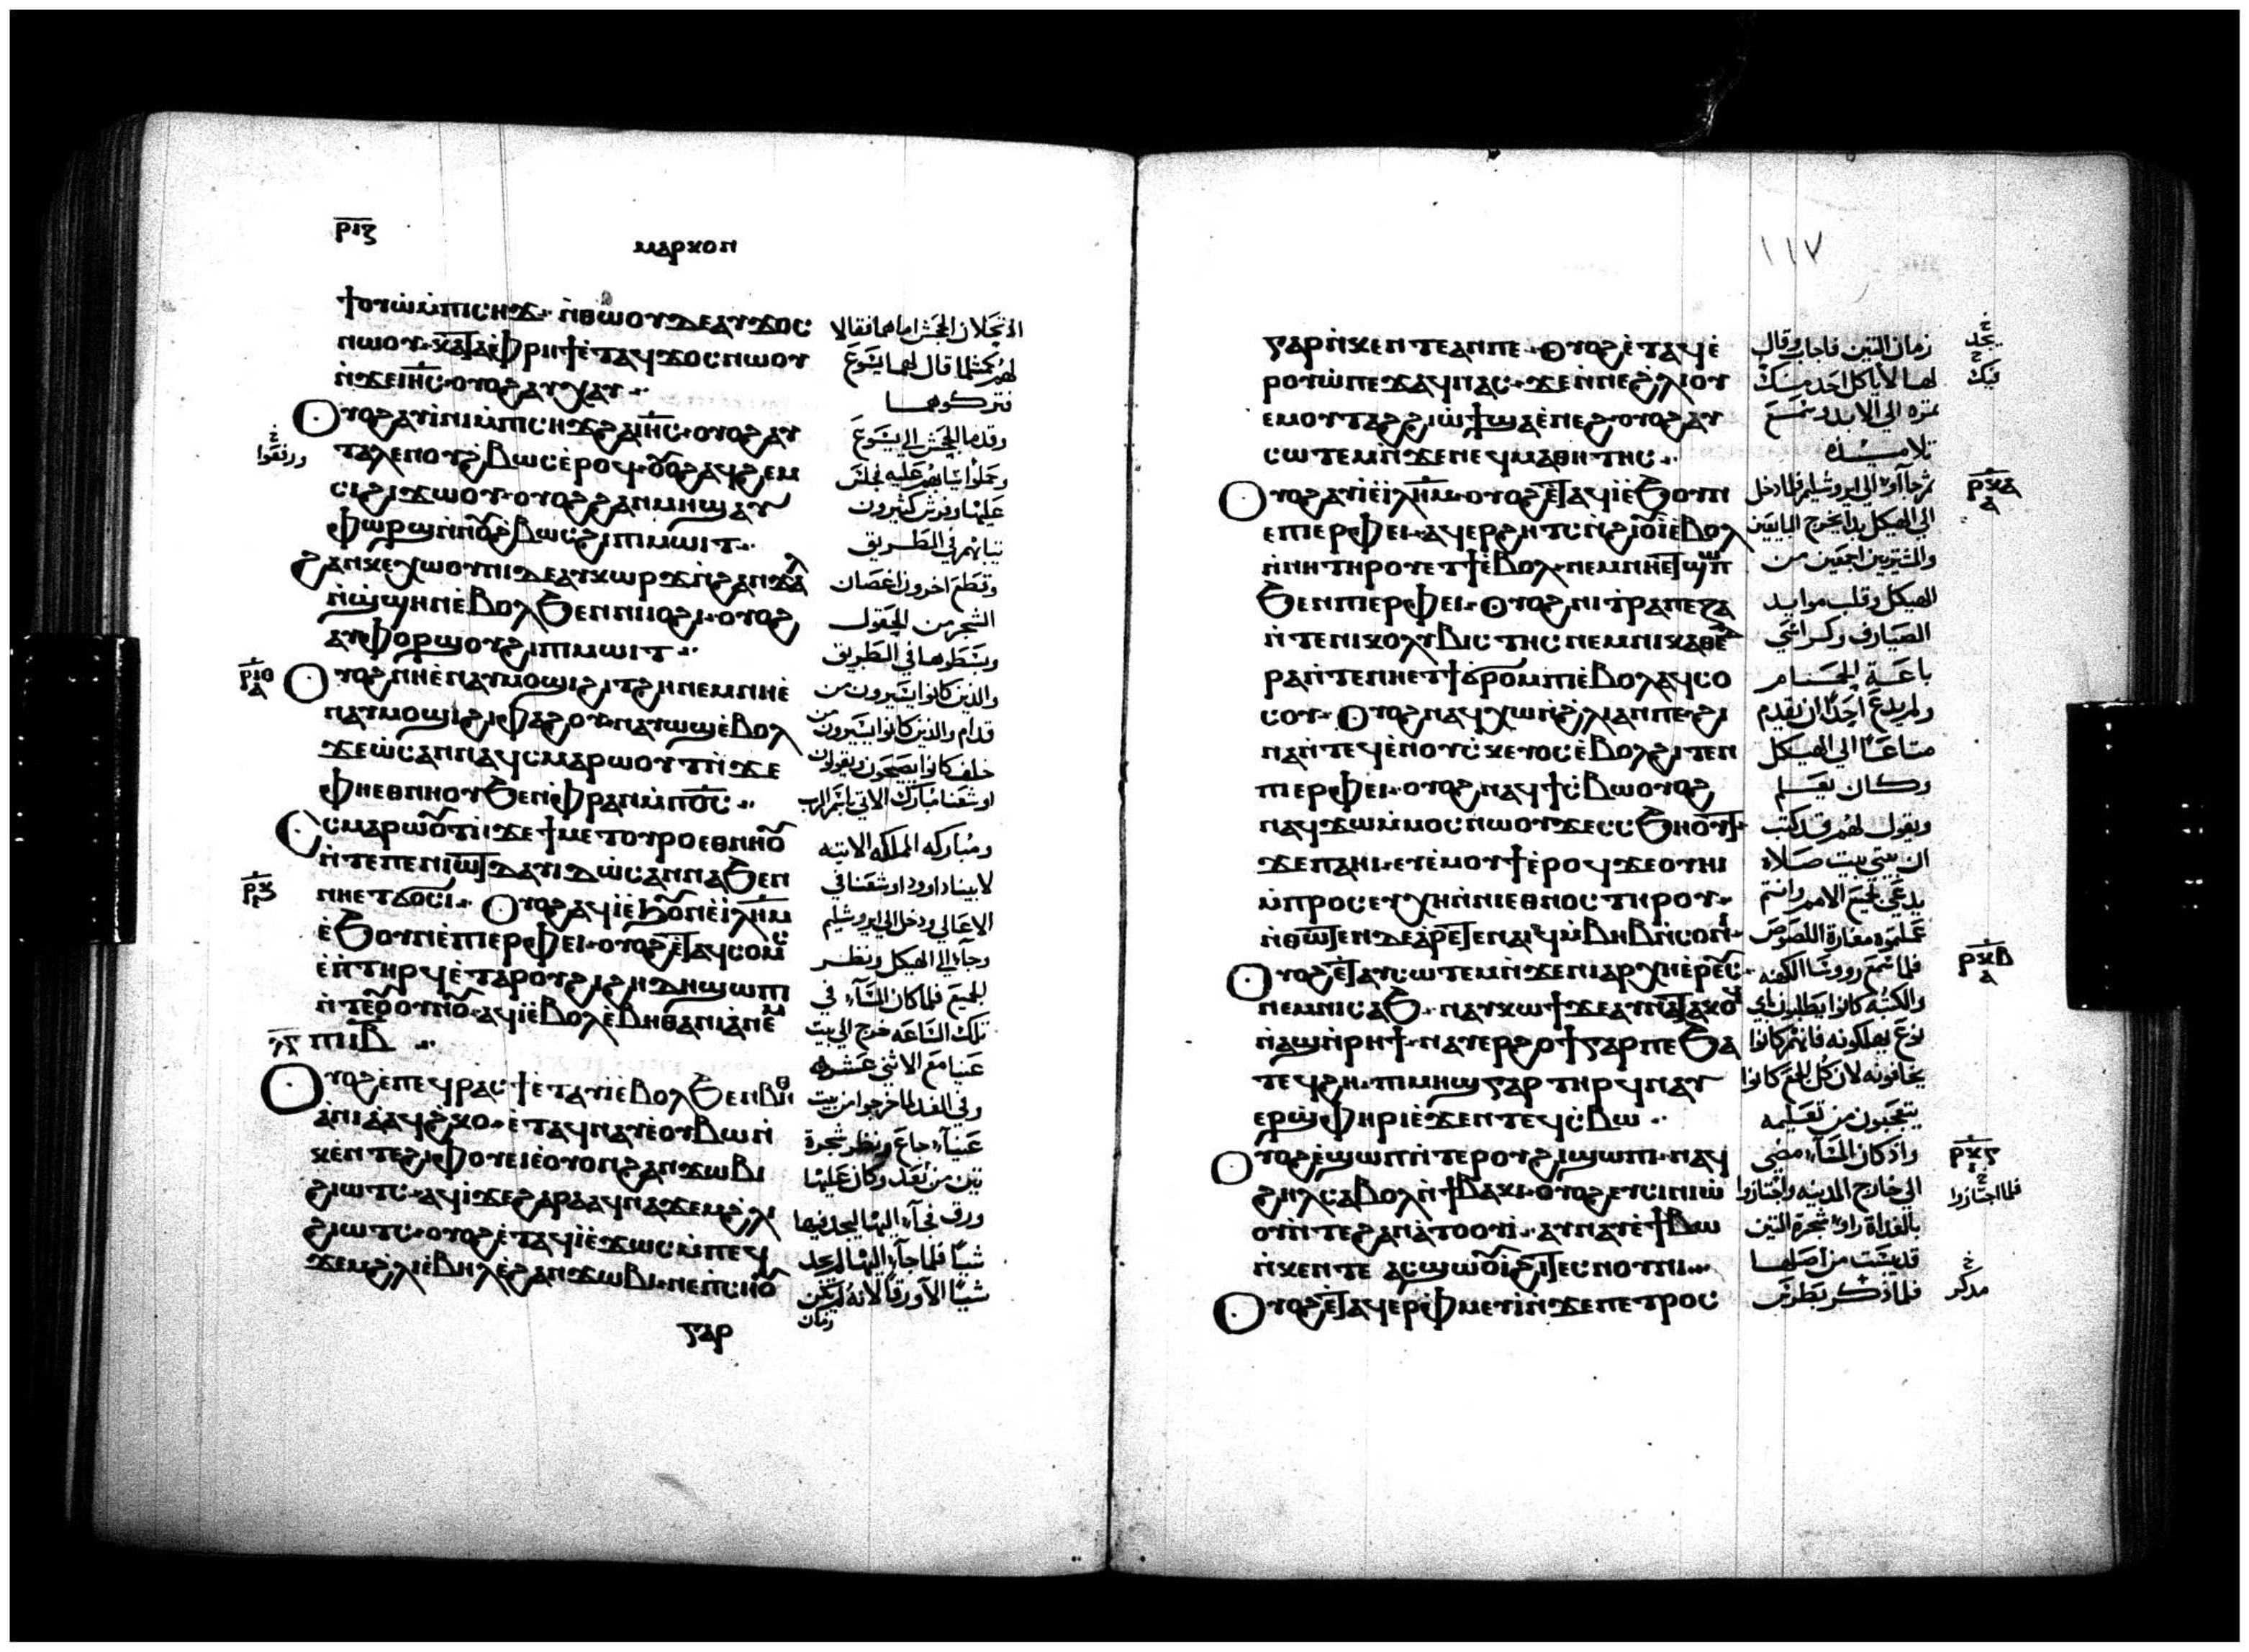 ⲣⲓⲍ
ⲙⲁⲣⲕⲟⲛ
ϯⲟⲩⲱ ⲙ̀ⲡⲓⲥⲏϫ ⲛ̀ⲑⲱⲟⲩ ⲇⲉ ⲁⲩϫⲟⲥ
ⲛⲱⲟⲩ ⲕⲁⲧⲁ ⲫⲣⲏϯ ⲉ̀ⲧⲁϥϫⲟⲥ ⲛⲱⲟⲩ
ⲛ̀ϫⲉ ⲓⲏⲥ ⲟⲩⲟϩ ⲁⲩⲭⲁⲩ
ⲟⲩⲟϩ ⲁⲩⲓ̀ⲛⲓ ⲙ̀ⲡⲓⲥⲏϫ ϩⲁ ⲓⲏⲥ ⲟⲩⲟϩ ⲁⲩ
ⲧⲁⲗⲉ ⲛⲟⲩϩⲃⲱⲥ ⲉ̀ⲣⲟϥ ⲟⲩⲟϩ ⲁϥϩⲉⲙ
ⲥⲓ ϩⲓϫⲱⲟⲩ ⲟⲩⲟϩ ϩⲁⲛⲙⲏϣ ⲁⲩ
ⲫⲱⲣϣ ⲛ̀ⲛⲟⲩϩⲃⲱⲥ ϩⲓ ⲡⲓⲙⲱⲓⲧ
ϩⲁⲛⲕⲉⲭⲱⲟⲩⲛⲓ ⲇⲉ ⲁⲩⲕⲱⲣϫ ⲛ̀ϩⲁⲛϫⲁⲗ
ⲛ̀ϣϣⲏⲛ ⲉ̀ⲃⲟⲗ ϧⲉⲛ ⲛⲓⲓⲟϩⲓ ⲟⲩⲟϩ
ⲁⲩⲫⲟⲣϣⲟⲩ ϩⲓ ⲡⲓⲙⲱⲓⲧ
ⲣⲓⲑ ⲟⲩⲟϩ ⲛⲏ ⲉ̀ⲛⲁⲩⲙⲟϣⲓ ϩⲓⲧϩⲏ ⲛⲉⲙ ⲛⲏ ⲉ̀
ⲛⲁⲩⲙⲟϣⲓ ϩⲓⲫⲁϩⲟⲩ ⲛⲁⲩⲱϣ ⲉ̀ⲃⲟⲗ
ϫⲉ ⲱ̀ⲥⲁⲛⲛⲁ ϥⲥⲙⲁⲣⲱⲟⲩⲧ ⲛ̀ϫⲉ
ⲫⲏⲉⲑⲛⲏⲟⲩ ϧⲉⲛ ⲫⲣⲁⲛ ⲙ̀ⲡⲟ̅ⲥ̅
ⲥⲥⲙⲁⲣⲱⲟⲩⲧ ⲛ̀ϫⲉ ϯⲙⲉⲧⲟⲩⲣⲟ ⲉⲑⲛⲏⲟⲩ
ⲛ̀ⲧⲉ ⲡⲉⲛⲓⲱⲧ ⲇⲁⲩⲓⲇ ⲱ̀ⲥⲁⲛⲛⲁ ϧⲉⲛ
ⲣⲕ ⲛⲏⲉⲧϭⲟⲥⲓ ⲟⲩⲟϩ ⲁϥⲓ̀ ⲉ̀ϧⲟⲩⲛ ⲉ̀ⲓⲗⲏⲙ
ⲉ̀ϧⲟⲩⲛ ⲉ̀ⲡⲓⲉⲣⲫⲉⲓ ⲟⲩⲟϩ ⲉⲧⲁϥⲥⲟⲙⲥ
ⲉ̀ⲡⲧⲏⲣϥ ⲉ̀ⲧⲁ ⲣⲟⲩϩⲓ ϩⲏⲇⲏ ϣⲱⲡⲓ
ⲛ̀ⲧⲉ ϯⲟⲩⲛⲟⲩ ⲁϥⲓ̀ ⲉ̀ⲃⲟⲗ ⲉ̀ⲃⲏⲑⲁⲛⲓⲁ ⲛⲉⲙ
ⲡⲓⲓⲃ
ⲟⲩⲟϩ ⲉ̀ⲡⲉϥⲣⲁⲥϯ ⲉ̀ⲧⲁⲩⲓ̀ ⲉⲃⲟⲗ ϧⲉⲛ ⲃⲏⲑ
ⲁⲛⲓⲁ̀ ⲁϥϩ̀ⲕⲟ ⲉ̀ⲧⲁϥⲛⲁⲩ ⲉ̀ⲟⲩⲃⲱ ⲛ̀
ⲕⲉⲛⲧⲉ ϩⲓ ⲫⲟⲩⲉⲓ ⲉ̀ⲟⲩⲟⲛ ϩⲁⲛϫⲱⲃⲓ
ϩⲓⲱⲧⲥ ⲁϥⲓ̀ ϫⲉ ϩⲁⲣⲁ ⲁϥⲛⲁϫⲉⲙ ϩ̀ⲗⲓ
ϩⲓⲱⲧⲥ ⲟⲩⲟϩ ⲉ̀ⲧⲁϥⲓ̀ ⲉ̀ϫⲱⲥ ⲙ̀ⲡⲉϥ
ϫⲉⲙ ϩ̀ⲗⲓ ⲉ̀ⲃⲏⲗ ⲉ̀ϩⲁⲛϫⲱⲃⲓ ⲛⲉ ⲡ̀ⲥⲏⲟⲩ
ⲅⲁⲣ
لهم كمثلما قال لهما ايشوع
فتركوهما
وقدما الجحش الى ايشوع
عليها وفرش كثيرون
ثيابهم في الطريق
وقطع اخرون اغصان
الشجر من الحقول
وبسطوها في الطريق
والذين كانوا يسيرون من
اوشعنا مبارك الاتي باسم الرب
ومباركه المملكه الاتيه
لابينا داوود اوشعنا في
الاعالي ودخل الى ايروشليم
وجاء الى الهيكل ونظر
للجميع فلما كان المساء في
تلك الساعه خرج الى بيت
عنيا مع الاثنى عشر
وفي الغد لما خرجوا من بيت
عنياء جاع ونظر شجرة
تين من بعد وكان عليها
ورق فجاء اليها ليجد فيها
شيا فلما جاء اليها لم يجد
شيا الا ورقا لانه لم يكن
زمان
١١٧
ⲅⲁⲣ ⲛ̀ⲕⲉⲛⲧⲉ ⲁⲛ ⲡⲉ ⲟⲩⲟϩ ⲉ̀ⲧⲁϥⲉ̀
ⲣⲟⲩⲱ̀ ⲡⲉϫⲁϥ ⲛⲁⲥ ϫⲉ ⲛ̀ⲛⲉ ϩ̀ⲗⲓ ⲟⲩ
ⲉⲙ ⲟⲩⲧⲁϩ ϩⲓⲱϯ ϣⲁ ⲉ̀ⲛⲉϩ ⲟⲩⲟϩ ⲁⲩ
ⲥⲱⲧⲉⲙ ⲛ̀ϫⲉ ⲛⲉϥⲙⲁⲑⲏⲧⲏⲥ
ⲟⲩⲟϩ ⲁⲩⲓ̀ ⲉ̀ⲓⲗⲏⲙ ⲟⲩⲟϩ ⲉⲧⲁϥⲓ̀ ⲉ̀ϧⲟⲩⲛ
ⲉⲡⲓⲉⲣⲫⲉⲓ ⲁϥⲉⲣϩⲏⲧⲥ ⲛ̀ϩⲓⲟⲩⲓ̀ ⲉ̀ⲃⲟⲗ
ⲛ̀ⲛⲏ ⲧⲏⲣⲟⲩ ⲉⲧϯ ⲉ̀ⲃⲟⲗ ⲛⲉⲙ ⲛⲏⲉⲧϣⲱⲡ
ϧⲉⲛ ⲡⲓⲉⲣⲫⲉⲓ ⲟⲩⲟϩ ⲛⲓⲧ̀ⲣⲁⲡⲉⲍⲁ
ⲛ̀ⲧⲉ ⲛⲓⲕⲟⲗⲩⲃⲓⲥⲧⲏⲥ ⲛⲉⲙ ⲛⲓⲕⲁⲑⲉⲇ
ⲣⲁ ⲛ̀ⲧⲉ ⲛⲏⲉⲧϯ ϭⲣⲟⲙⲡⲓ ⲉ̀ⲃⲟⲗ ⲁϥⲥⲟ
ⲥⲟⲩ ⲟⲩⲟϩ ⲛⲁϥⲭⲱ ⲛ̀ϩ̀ⲗⲓ ⲁⲛ ⲡⲉ ϩⲓ
ⲛⲁ ⲛ̀ⲧⲉϥⲉ̀ⲛ ⲟⲩⲥ̀ⲕⲉⲩⲟⲥ ⲉ̀ⲃⲟⲗ ϩⲓⲧⲉⲛ
ⲡⲓⲉⲣⲫⲉⲓ ⲟⲩⲟϩ ⲛⲁϥϯⲥ̀ⲃⲱ ⲟⲩⲟϩ
ⲛⲁϥϫⲱ ⲙ̀ⲙⲟⲥ ⲛⲱⲟⲩ ϫⲉ ⲥⲥϧⲏⲟⲩⲧ
ϫⲉ ⲡⲁⲏⲓ ⲉⲩⲉ̀ⲙⲟⲩϯ ⲉ̀ⲣⲟϥ ϫⲉ ⲟⲩⲏⲓ
ⲙ̀ⲡⲣⲟⲥⲉⲩⲭⲏ ⲛ̀ⲛⲓⲉⲑⲛⲟⲥ ⲧⲏⲣⲟⲩ
ⲛ̀ⲑⲱⲧⲉⲛ ⲇⲉ ⲁⲣⲉⲧⲉⲛⲁⲓϥ ⲙ̀ⲃⲏⲃ ⲛ̀ⲥⲟⲛⲓ
ⲟⲩⲟϩ ⲉⲧⲁⲩⲥⲱⲧⲉⲙ ⲛ̀ϫⲉ ⲛⲓⲁⲣⲭⲏⲉ̀ⲣⲉⲩⲥ
ⲛⲉⲙ ⲛⲓⲥⲁϧ ⲛⲁⲩⲕⲱϯ ϫⲉ ⲁⲩⲛⲁⲧⲁⲕⲟϥ
ⲛ̀ⲁϣ ⲛ̀ⲣⲏϯ ⲛⲁⲩⲉⲣϩⲟϯ ⲅⲁⲣ ⲡⲉ ϧⲁ
ⲧⲉϥϩⲏ ⲡⲓⲙⲏϣ ⲅⲁⲣ ⲧⲏⲣϥ ⲛⲁⲩ
ⲉⲣϣ̀ⲫⲏⲣⲓ ⲉ̀ϫⲉⲛ ⲧⲉϥⲥ̀ⲃⲱ
ⲟⲩⲟϩ ⲉ̀ϣⲱⲡ ⲛ̀ⲧⲉ ⲣⲟⲩϩⲓ ϣⲱⲡⲓ ⲛⲁϥ
ϩⲏⲗ ⲥⲁⲃⲟⲗ ⲛ̀ϯⲃⲁⲕⲓ ⲟⲩⲟϩ ⲉⲩⲥⲓⲛⲓⲱ̀
ⲟⲩⲓ̀ ⲛ̀ⲧⲉ ϩⲁⲛⲁ̀ⲧⲟⲟⲩⲓ̀ ⲁⲩⲛⲁⲩ ⲉ̀ϯⲃⲱ
ⲛ̀ⲕⲉⲛⲧⲉ ⲁⲥϣⲱⲟⲩⲓ̀ ϩⲓ ⲧⲉⲥⲛⲟⲩⲛⲓ
ⲟⲩⲟϩ ⲉⲧⲁϥⲉⲣⲫⲙⲉⲩⲓ̀ ⲛ̀ϫⲉ ⲡⲉⲧⲣⲟⲥ
زمان التين فاجاب وقال
لها لا ياكل احد منك
ثمره الى الابد وسمع
تلاميذه
الى الهيكل بدا يخرج البايعين
والمشتريين اجمعين من
الهيكل وقلب موايد
الصيارف وكراسي
باعة الحمام
ولم يدع احدا ان يقدم
متاعا الى الهيكل
وكان يعلم
ويقول لهم قد كتب
ان بيتي بيت صلاه
يدعى لجميع الامم وانتم
عملتموه مغارة اللصوص
فلما سمع رووسا الكهنه
يخافونه لان كل الجمع كانوا
يتعجبون من تعليمه
واذ كان المساء مضى
الى خارج المدينه واجتازوا
بالغداة راوا شجرة التين
قد يبست من اصلها
فلما ذكر بطرس
ⲣⲕⲁ
ⲣⲕⲃ
ⲣⲕⲅ